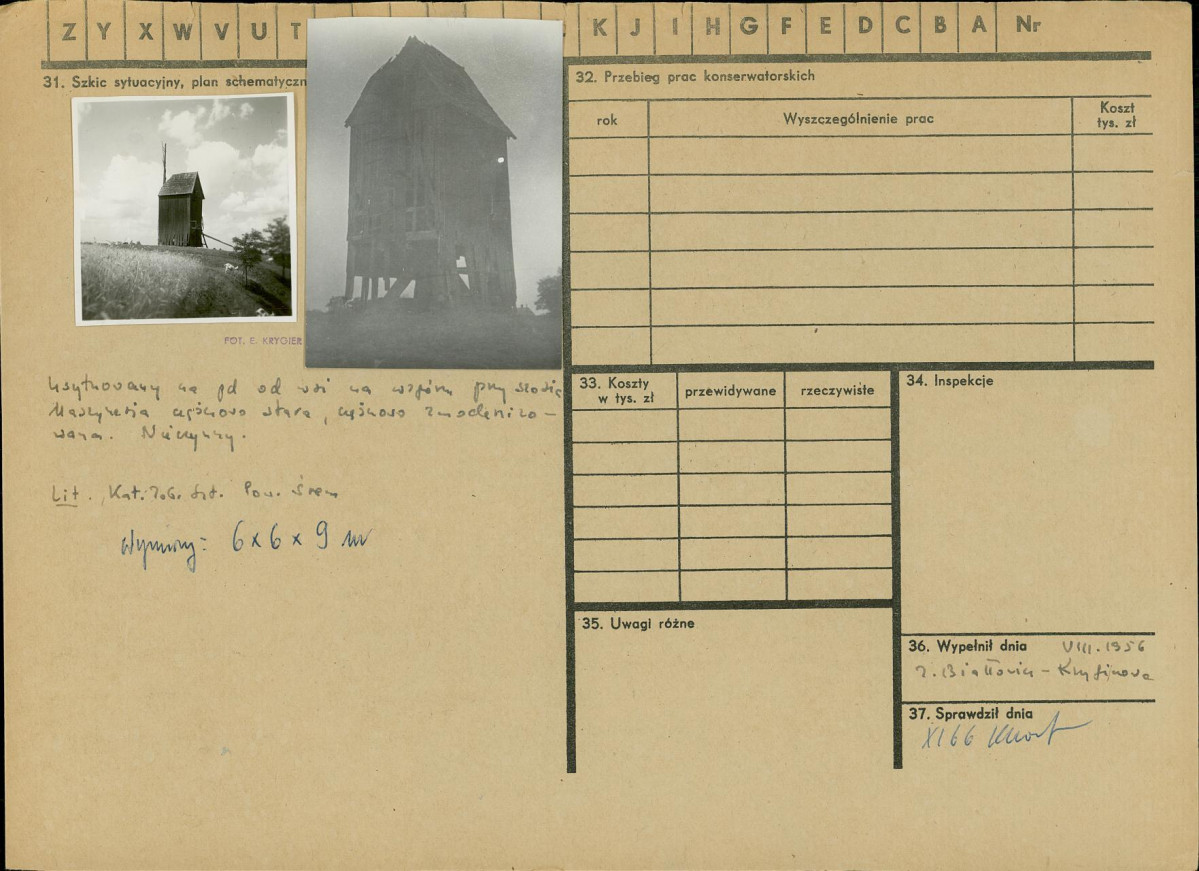 Z Y X W V U T K J I H G F E D C B A Nr
31. Szkic sytuacyjny, plan schematyczn
FOT. E. KRYGIER
Usytuowany na pd od wsi na wzgórzu przy szosie
Maszyneria częściowo stara, częściowo zmodernizo-
wana. Nieczynny.
Lit. Kat. Zab. Szt. Pow. Śrem
Wymiary: 6 x 6 x 9 m
32. Przebieg prac konserwatorskich
rok Wyszczególnienie prac Koszt tys. zł
33. Koszty w tys. zł przewidywane rzeczywiste
34. Inspekcje
35. Uwagi różne
36. Wypełnił dnia VIII. 1956
37. Sprawdził dnia
XI 66